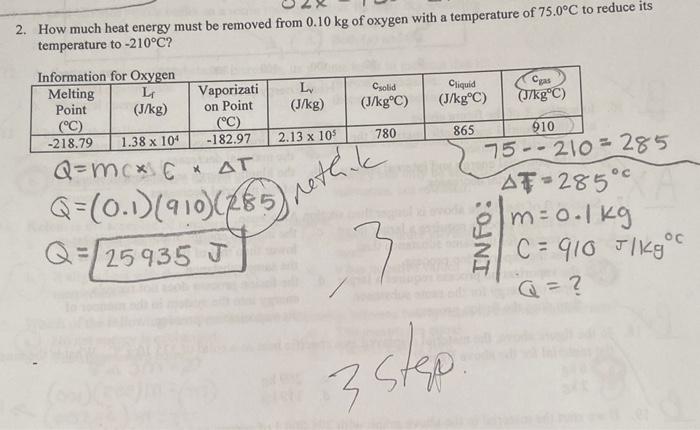 2. How much heat energy must be removed from 0.10 kg of oxygen with a temperature of 75.0°C to reduce its
temperature to -210°C?
Information for Oxygen
Melting Point (°C) Lf (J/kg) Vaporizati on Point (°C) Lv (J/kg) Csolid (J/kg°C) Cliquid (J/kg°C) Cgas (J/kg°C)
-218.79 1.38 x 10⁴ -182.97 2.13 x 10⁵ 780 865 910
75 - - 210 = 285
Q = mc x C x ΔT
rethink
ΔT = 285°C
Q = (0.1)(910)(285)
Q = 25935 J
INFO:
m = 0.1 kg
C = 910 J/kg°C
Q = ?
3
3 step.